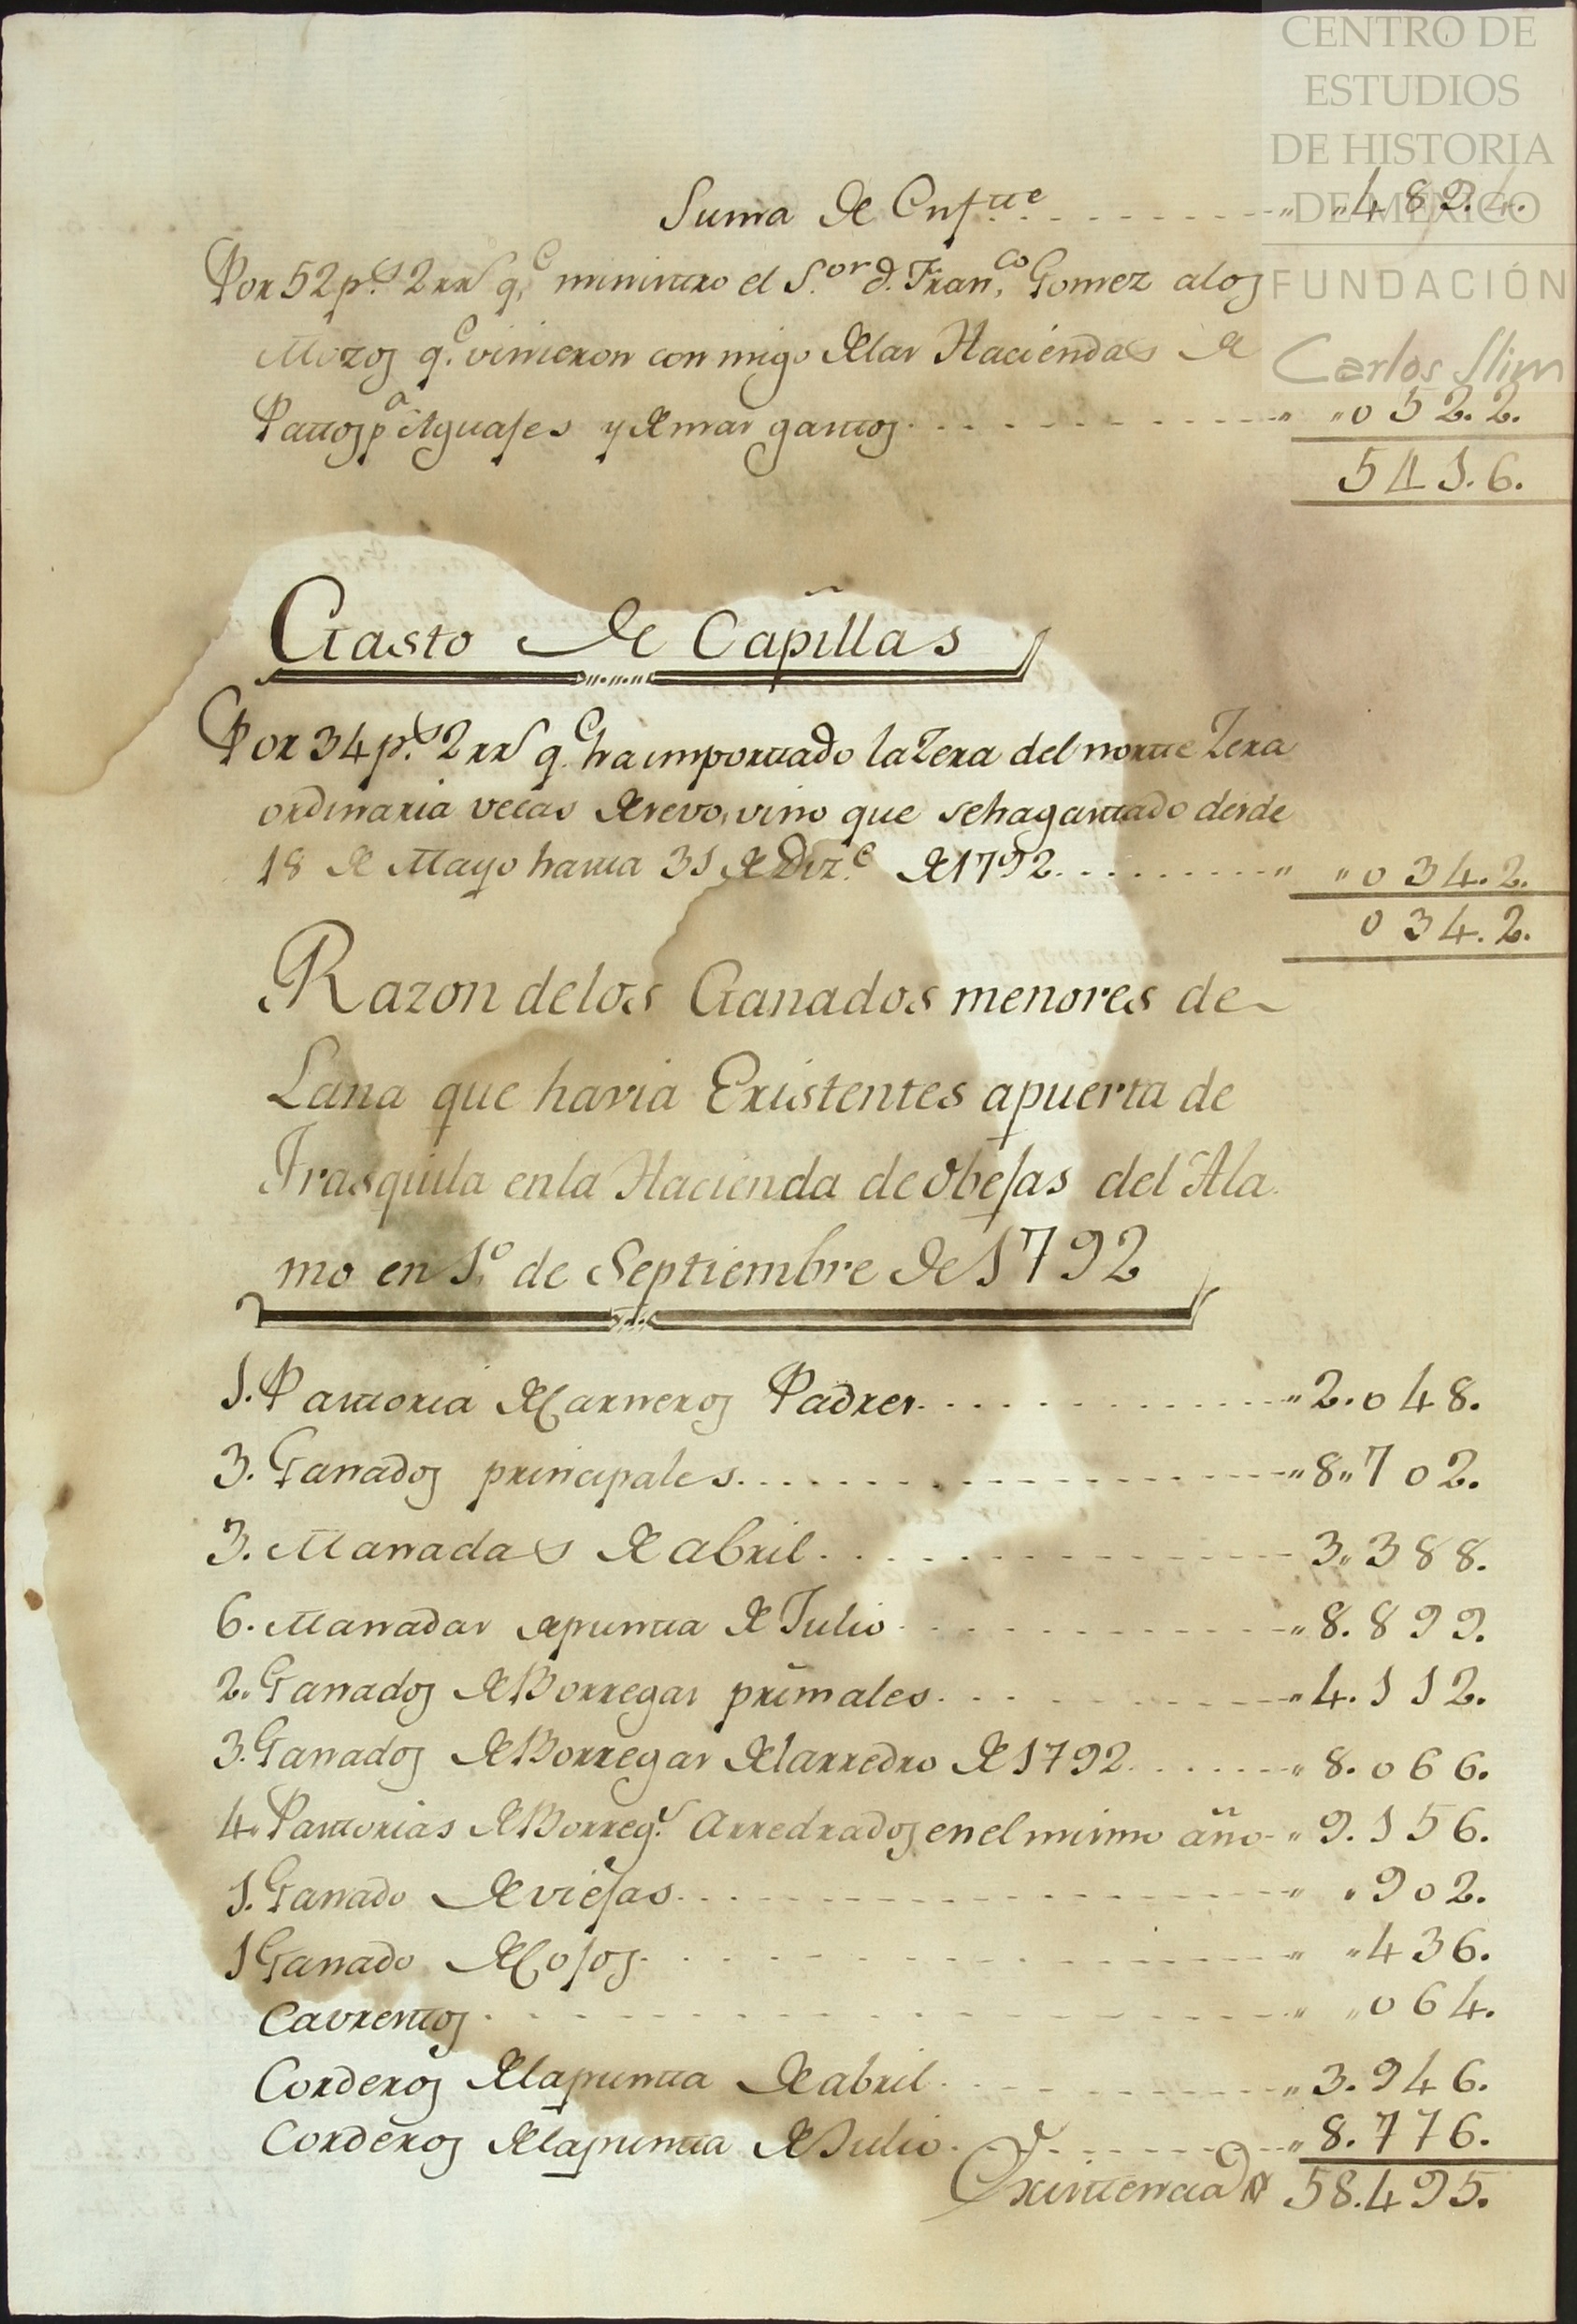 CENTRO DE
ESTUDIOS
DE HISTORIA
DE MÉXICO
FUNDACIÓN
Carlos Slim
Suma de Enf.tte " " 489.4.
Por 52 p.s 2 rr.s q.e ministro el S.or d. Fran.co Gomez alos
Mozos q.e vinieron con migo delas Haciendas de
Pattos p.a Aguajes y demas gasttos " " 0 52.2.
541.6.
Gasto de Capillas
Por 34 p.s 2 rr.s q.e ha importtado la Zera del nortte Zera
ordinaria velas de sevo, vino que sehagasttado desde
18 de Mayo hasta 31 de Diz.e de 1792 " " 0 34.2.
0 34.2.
Razon delos Ganados menores de
Lana que havia Existentes apuerta de
Trasquila enla Hacienda de Obejas del Ala
mo en 1.o de Septiembre de 1792
1. Pasttoria de Carneros Padres " 2.048.
3. Ganados principales " 8"702.
3. Manadas de abril 3"388.
6. Manadas apuntta de Julio " 8.899.
2. Ganados de Borregas primales " 4.112.
3. Ganados de Borregas delarredro de 1792 " 8.066.
4. Pasttorias de Borreg.s Arredrados enel mismo año " 9.156.
1. Ganado de viejas " " 902.
1 Ganado de Cojos " " 436.
Cavresttos " " 064.
Corderos delapuntta de abril " 3.946.
Corderos delapuntta de Julio " 8.776.
Existencia 58.495.